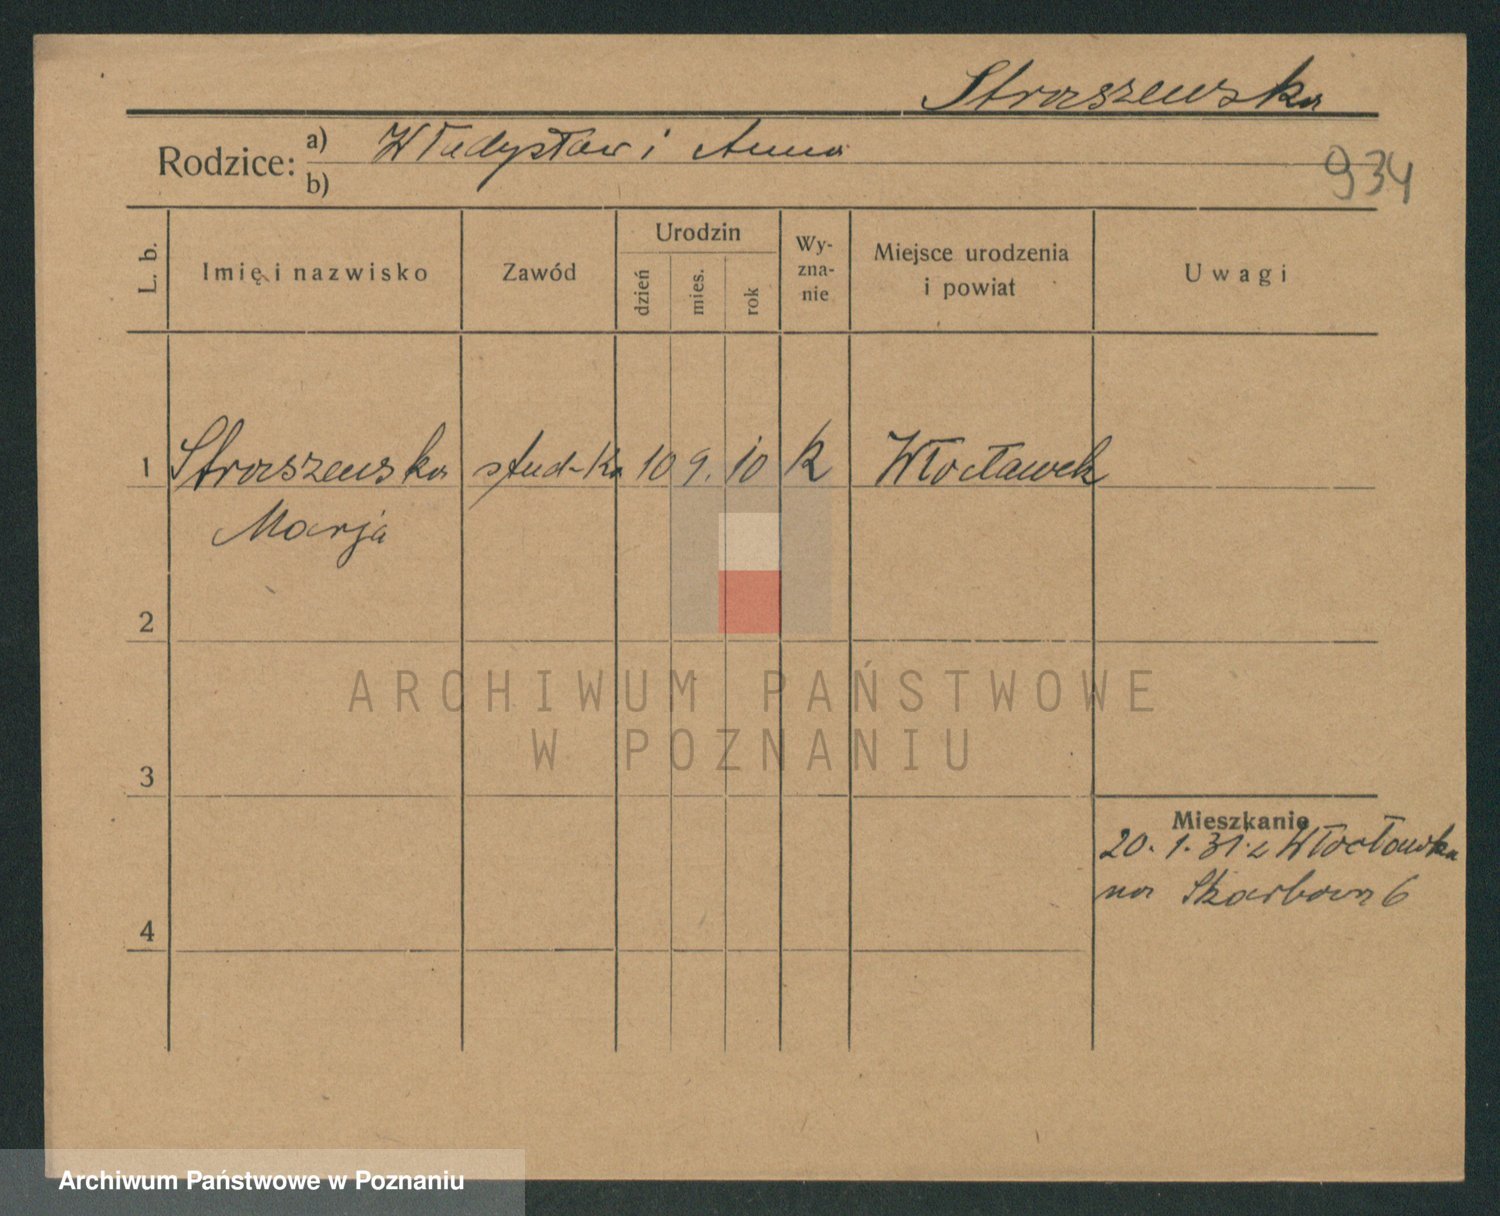 Straszewska
Rodzice: a) Władysław i Anna
b)
934
L. b.
Imię i nazwisko
Zawód
Urodzin
dzień
mies.
rok
Wy-
zna-
nie
Miejsce urodzenia
i powiat
Uwagi
1 Straszewska stud-ka 10 9. 10 k Włocławek
Marja
2
3
4
Mieszkanie
20. 1. 31 z Włocławka
na Skarbowa 6
ARCHIWUM PAŃSTWOWE
W POZNANIU
Archiwum Państwowe w Poznaniu